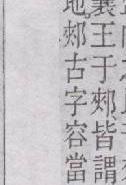 襄王于郟皆謂
地郟古字容當